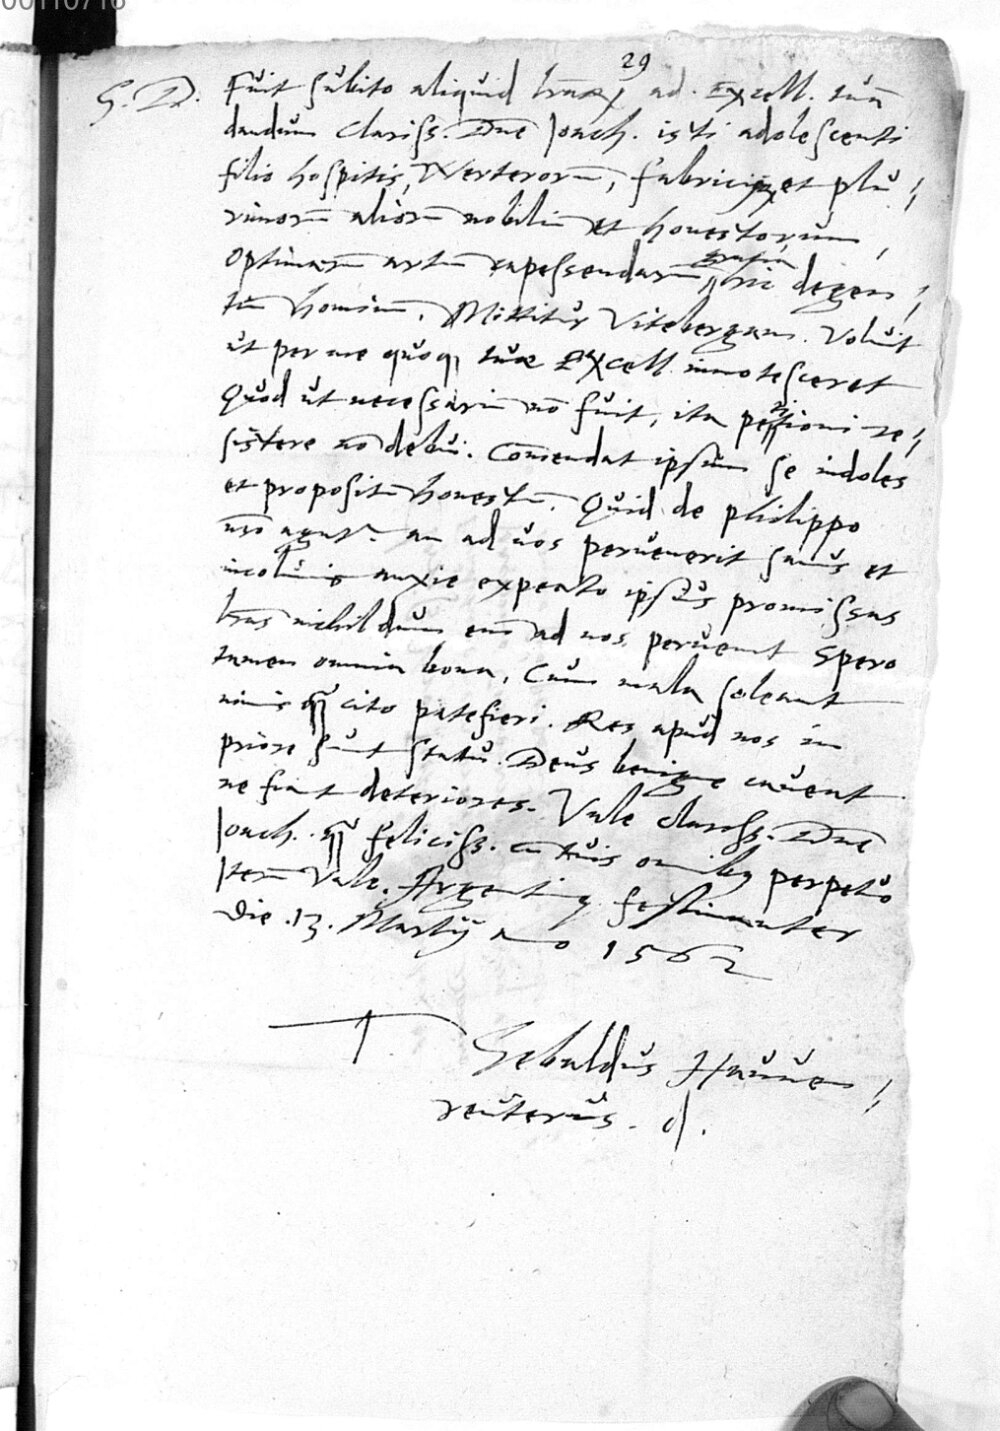 00110716
29
S. D. Fuit subito aliquid lrarũ ad Excell. tuã
dandum Clariss. Dne Joach. isti adolescenti
filio hospitis, Werterorũ, Fabricij et plu¬
rimorũ aliorũ nobiliũ et honestorum,
optimarũ artiũ capessendarũ gratia hic degen¬
tiũ hominũ. Mittitur Vitebergam. Voluit
ut per me quoq, tuæ Excell. innotesceret
Quod ut necessariũ nõ fuit, ita petitioni re¬
sistere nõ debui. Comendat ipsum se indoles
et propositũ honestũ. Quid de philippo
nr̃o agat~ an ad uos peruenerit sanus et
incolumis anxie expecto ipsius promissas
lr̃as nichildum em̃ ad nos peruenit Spero
tamen omnia bona, Cum mala soleant
nimis q̃ cito patefieri. Res apud nos in
priore sunt statu. Deus benigne caueat
ne fiant deteriores. Vale clariss. Dne
Joach. q̃ feliciss. cũ tuis omibq perpetuo
Iterũ Vale. Argentinę festinanter
Die .13. Martij año 1562
Sebaldus Hauuen¬
reuterus. d.